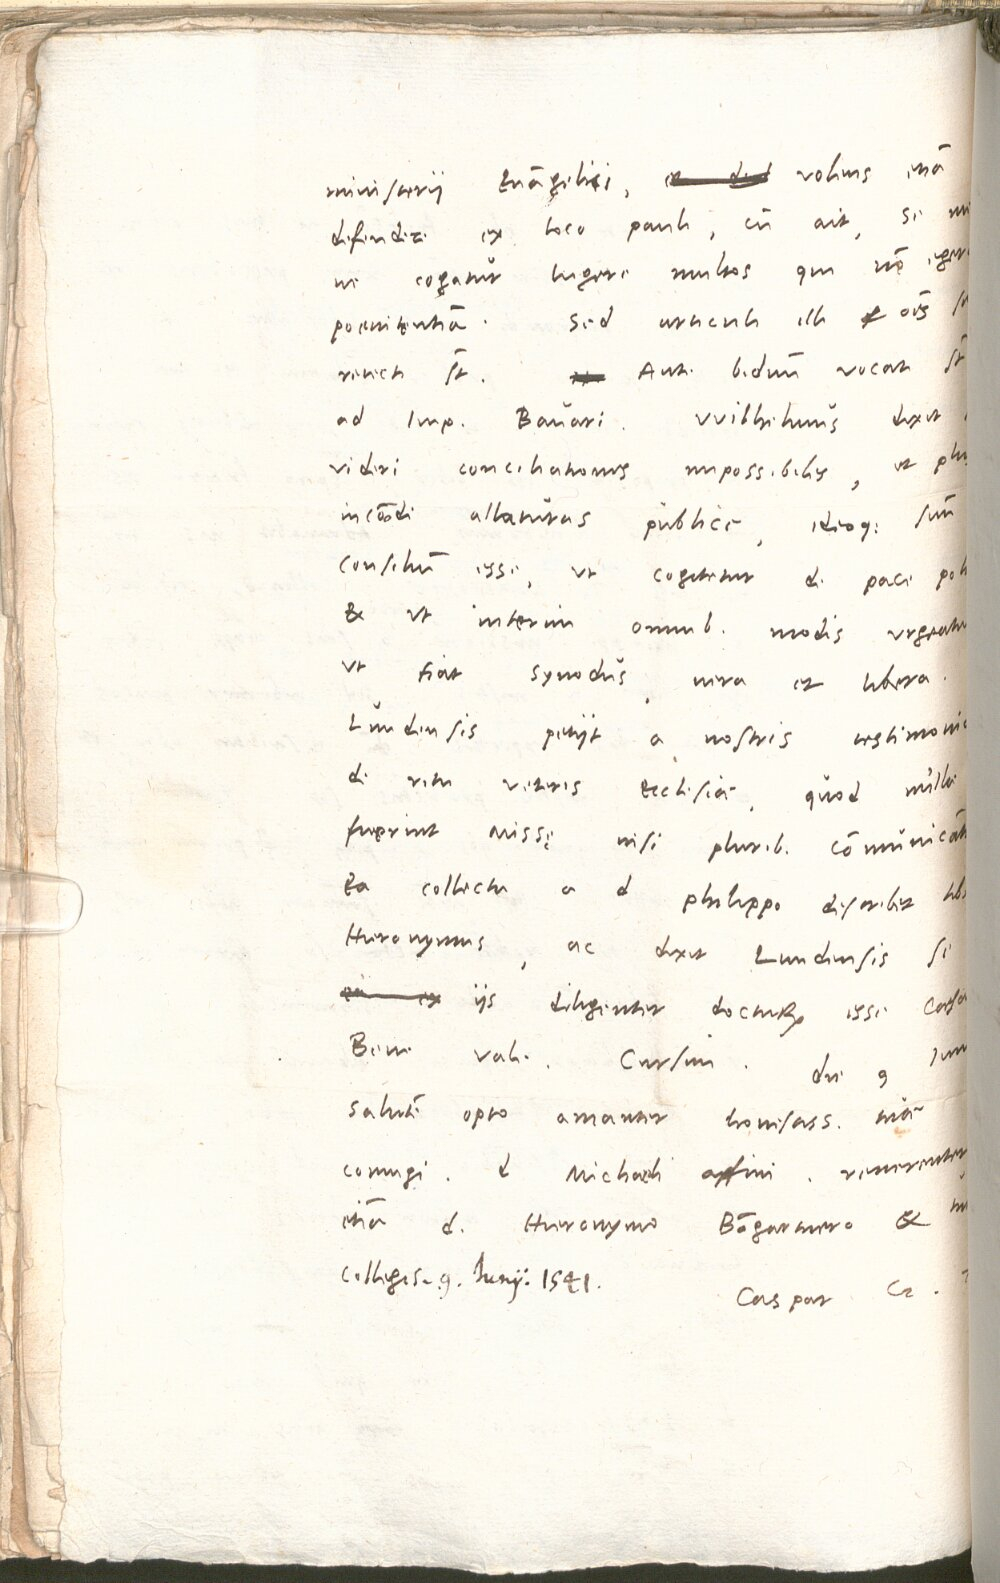 ministerij Euāgelici, volums etiā
defendere ex loco pauli, cū ait, Se
ne cogatur lugere multos qui nō eger
poenitentiā. Sed articuli illi oēs
reiecti st̄. Ante biduū vocati st̄
ad Imp. Bauari. VVilhelmus dixit
videri conciliationis impossibiles, et
incōodi allaturas publice, ideoq; suū
consiliū esse, vt cogitetur de pace pol
& vt interim omnib. modis vrgeatur
vt fiat Synodus vera et libera.
Lundensis petijt a nostris testimoni
de ritu veteris Ecclesiæ, quod nullæ
fuerint Missę nisi plurib. cōmunicāt
Ea collecta a d philippo describet tibi
Hieronymus, ac dixit Lundensis se
ijs diligenter docturum esse Cæsa
Bene vale. Cursim. die 9 Iun
Salutē opto amanter honestiss. tuæ
coniugi. d Michaeli affini. reuerenter
etiā d. Hieronymo Bōgartnero &
collegis. 9. Iunij. 1541.
Caspar Cr.